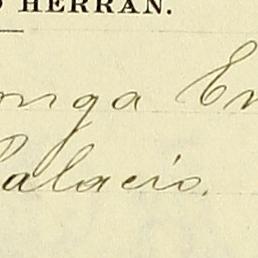 HERRAN.
onga En
Palacio.